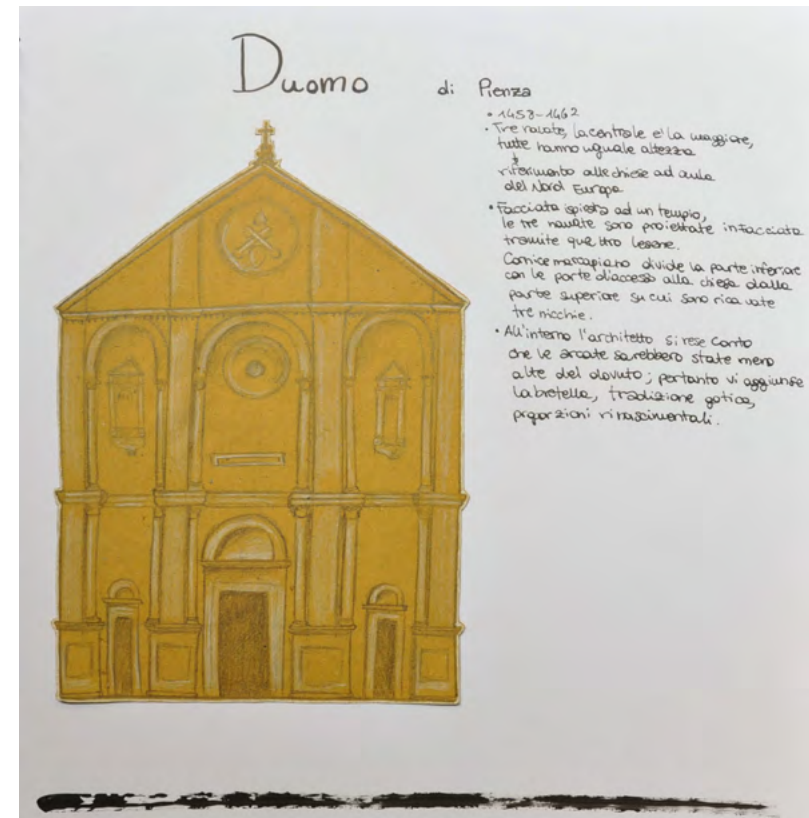 Duomo di Pienza
• 1459-1462
• Tre navate, la centrale e' la maggiore,
tutte hanno uguale altezza
riferimento alle chiese ad aula
del Nord Europa
• Facciata ispirata ad un tempio,
le tre navate sono proiettate in facciata
tramite quattro lesene.
Cornice marcapiano divide la parte inferiore
con le porte d'accesso alla chiesa dalla
parte superiore su cui sono ricavate
tre nicchie.
• All'interno l'architetto si rese conto
che le arcate sarebbero state meno
alte del dovuto; pertanto vi aggiunse
la bretella, tradizione gotica,
proporzioni rinascimentali.